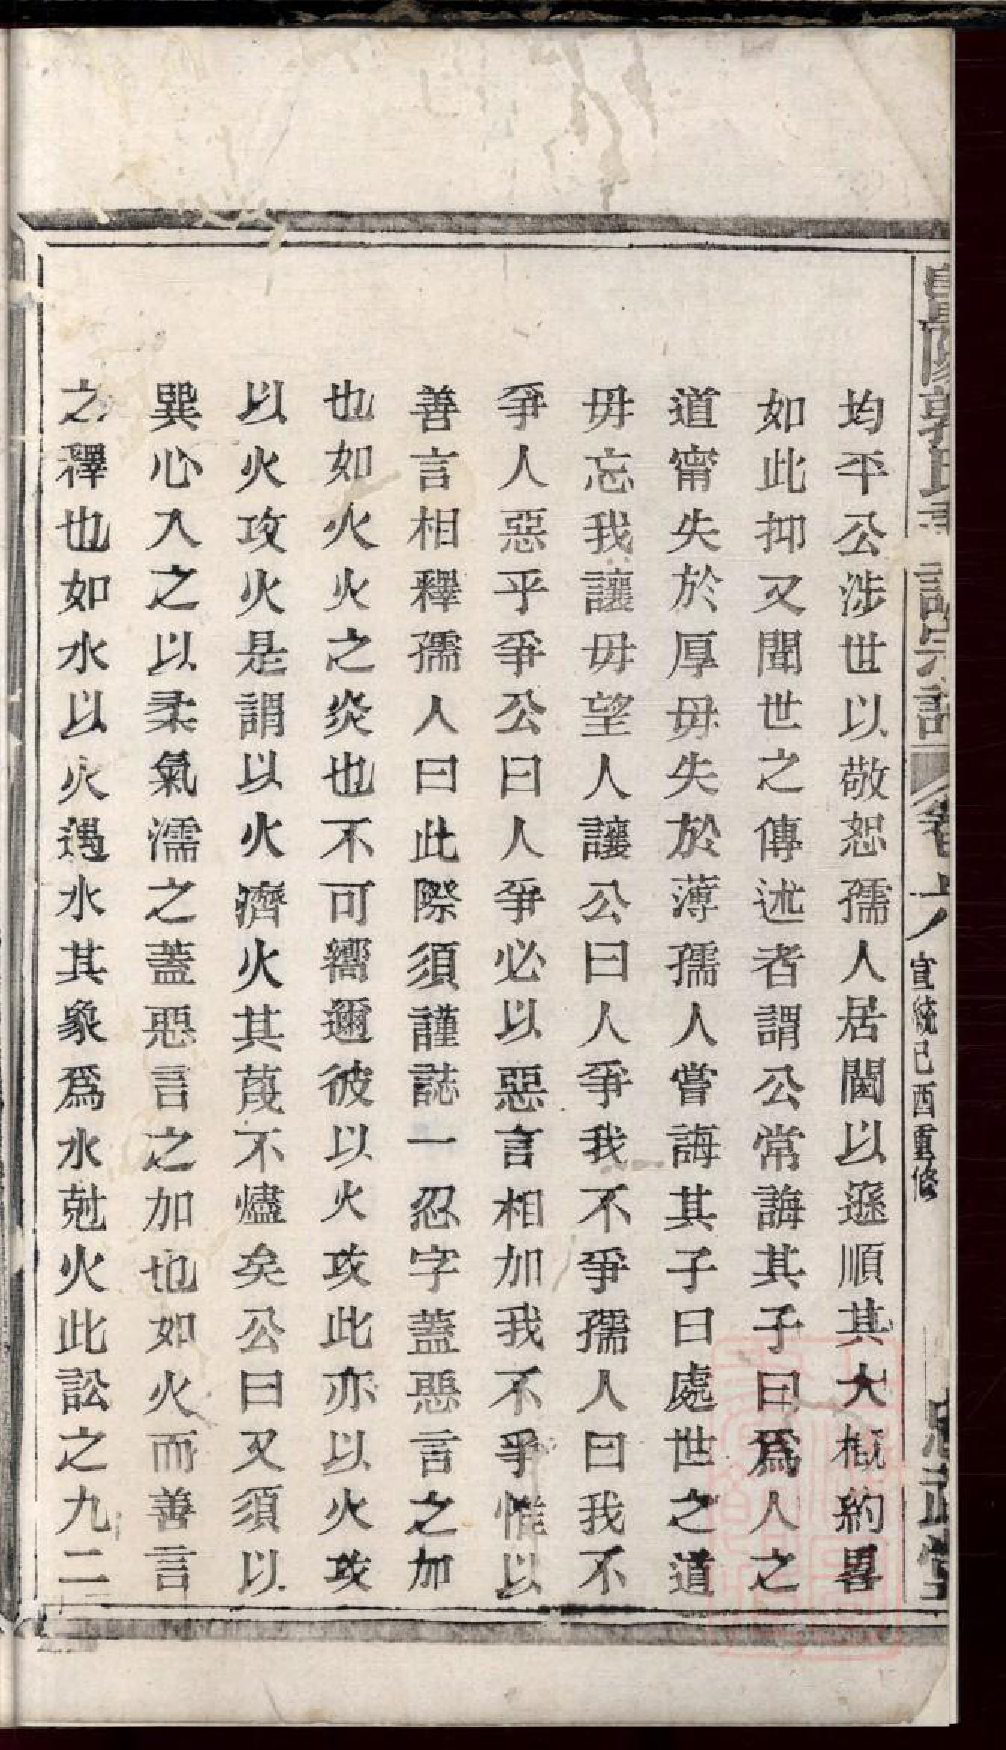 均平公涉世以敬恕孺人居閫以遜順其大槪約畧
如此抑又聞世之傳述者謂公常誨其子曰爲人之
道甯失於厚毋失於薄孺人嘗誨其子曰處世之道
毋忘我讓毋望人讓公曰人爭我不爭孺人曰我不
爭人惡乎爭公曰人爭必以惡言相加我不爭惟以
善言相釋孺人曰此際須謹誌一忍字蓋惡言之加
也如火火之炎也不可嚮邇彼以火攻此亦以火攻
以火攻火是謂以火濟火其蔑不燼矣公曰又須以
巽心入之以柔氣濡之蓋惡言之加也如火而善言
之釋也如水以火遇水其象爲水尅火此訟之九二
卷六
宣統己酉重修